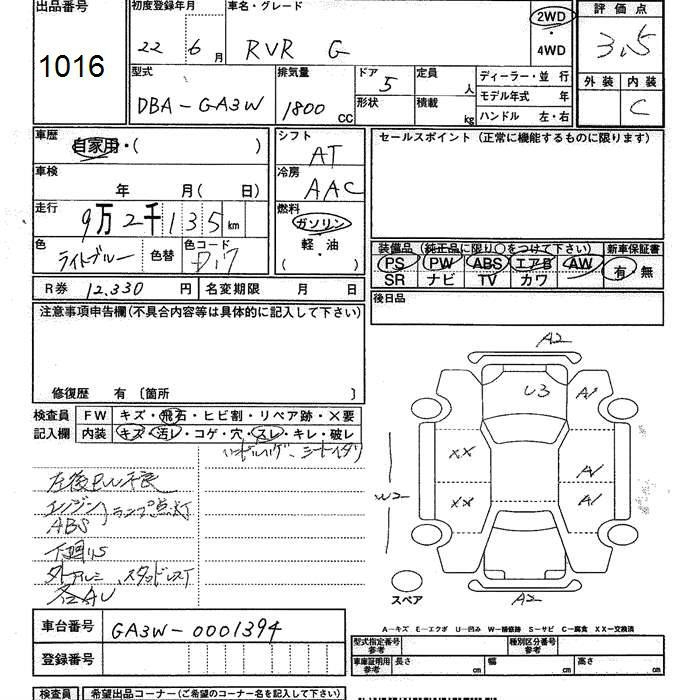 出品番号
1016
初度登録年月
22 6月
車名・グレード
RVR G
2WD
・
4WD
評価点
3.5
外装 内装
C
型式
DBA-GA3W
排気量
1800 CC
ドア
5
形状
定員
人
積載
kg
ディーラー・並行
モデル年式 年
ハンドル 左・右
車歴
自家用・( )
車検
年 月( 日)
走行
9万2千135km
色
ライトブルー
色替
色コード
D17
シフト
AT
冷房
AAC
燃料
ガソリン
軽・油
( )
セールスポイント(正常に機能するものに限ります)
装備品(純正品に限り○をつけて下さい)
新車保証書
PS PW ABS エアB AW
SR ナビ TV カワ
有・無
R券 12,330 円
名変期限 月 日
後日品
注意事項申告欄(不具合内容等は具体的に記入して下さい)
修復歴 有〔箇所 〕
検査員
記入欄
FW キズ・飛石・ヒビ割・リペア跡・×要
内装 キズ・汚レ・コゲ・穴・スレ・キレ・破レ
左後PW不良
エンジン
ABS
ランプ点灯
下廻りS
社外アルミ、スタッドレスT
各AU
A2
U3
A1
XX
A1
W2
XX
A1
A2
スペア
A-キズ E-エクボ U-凹み W-補修跡 S-サビ C-腐食 XX-交換済
車台番号 GA3W-0001394
登録番号
型式指定番号
参考
種別区分番号
参考
車庫証明用
参考
長さ cm
幅 cm
高さ cm
検査員 希望出品コーナー(ご希望のコーナー名を記入して下さい)